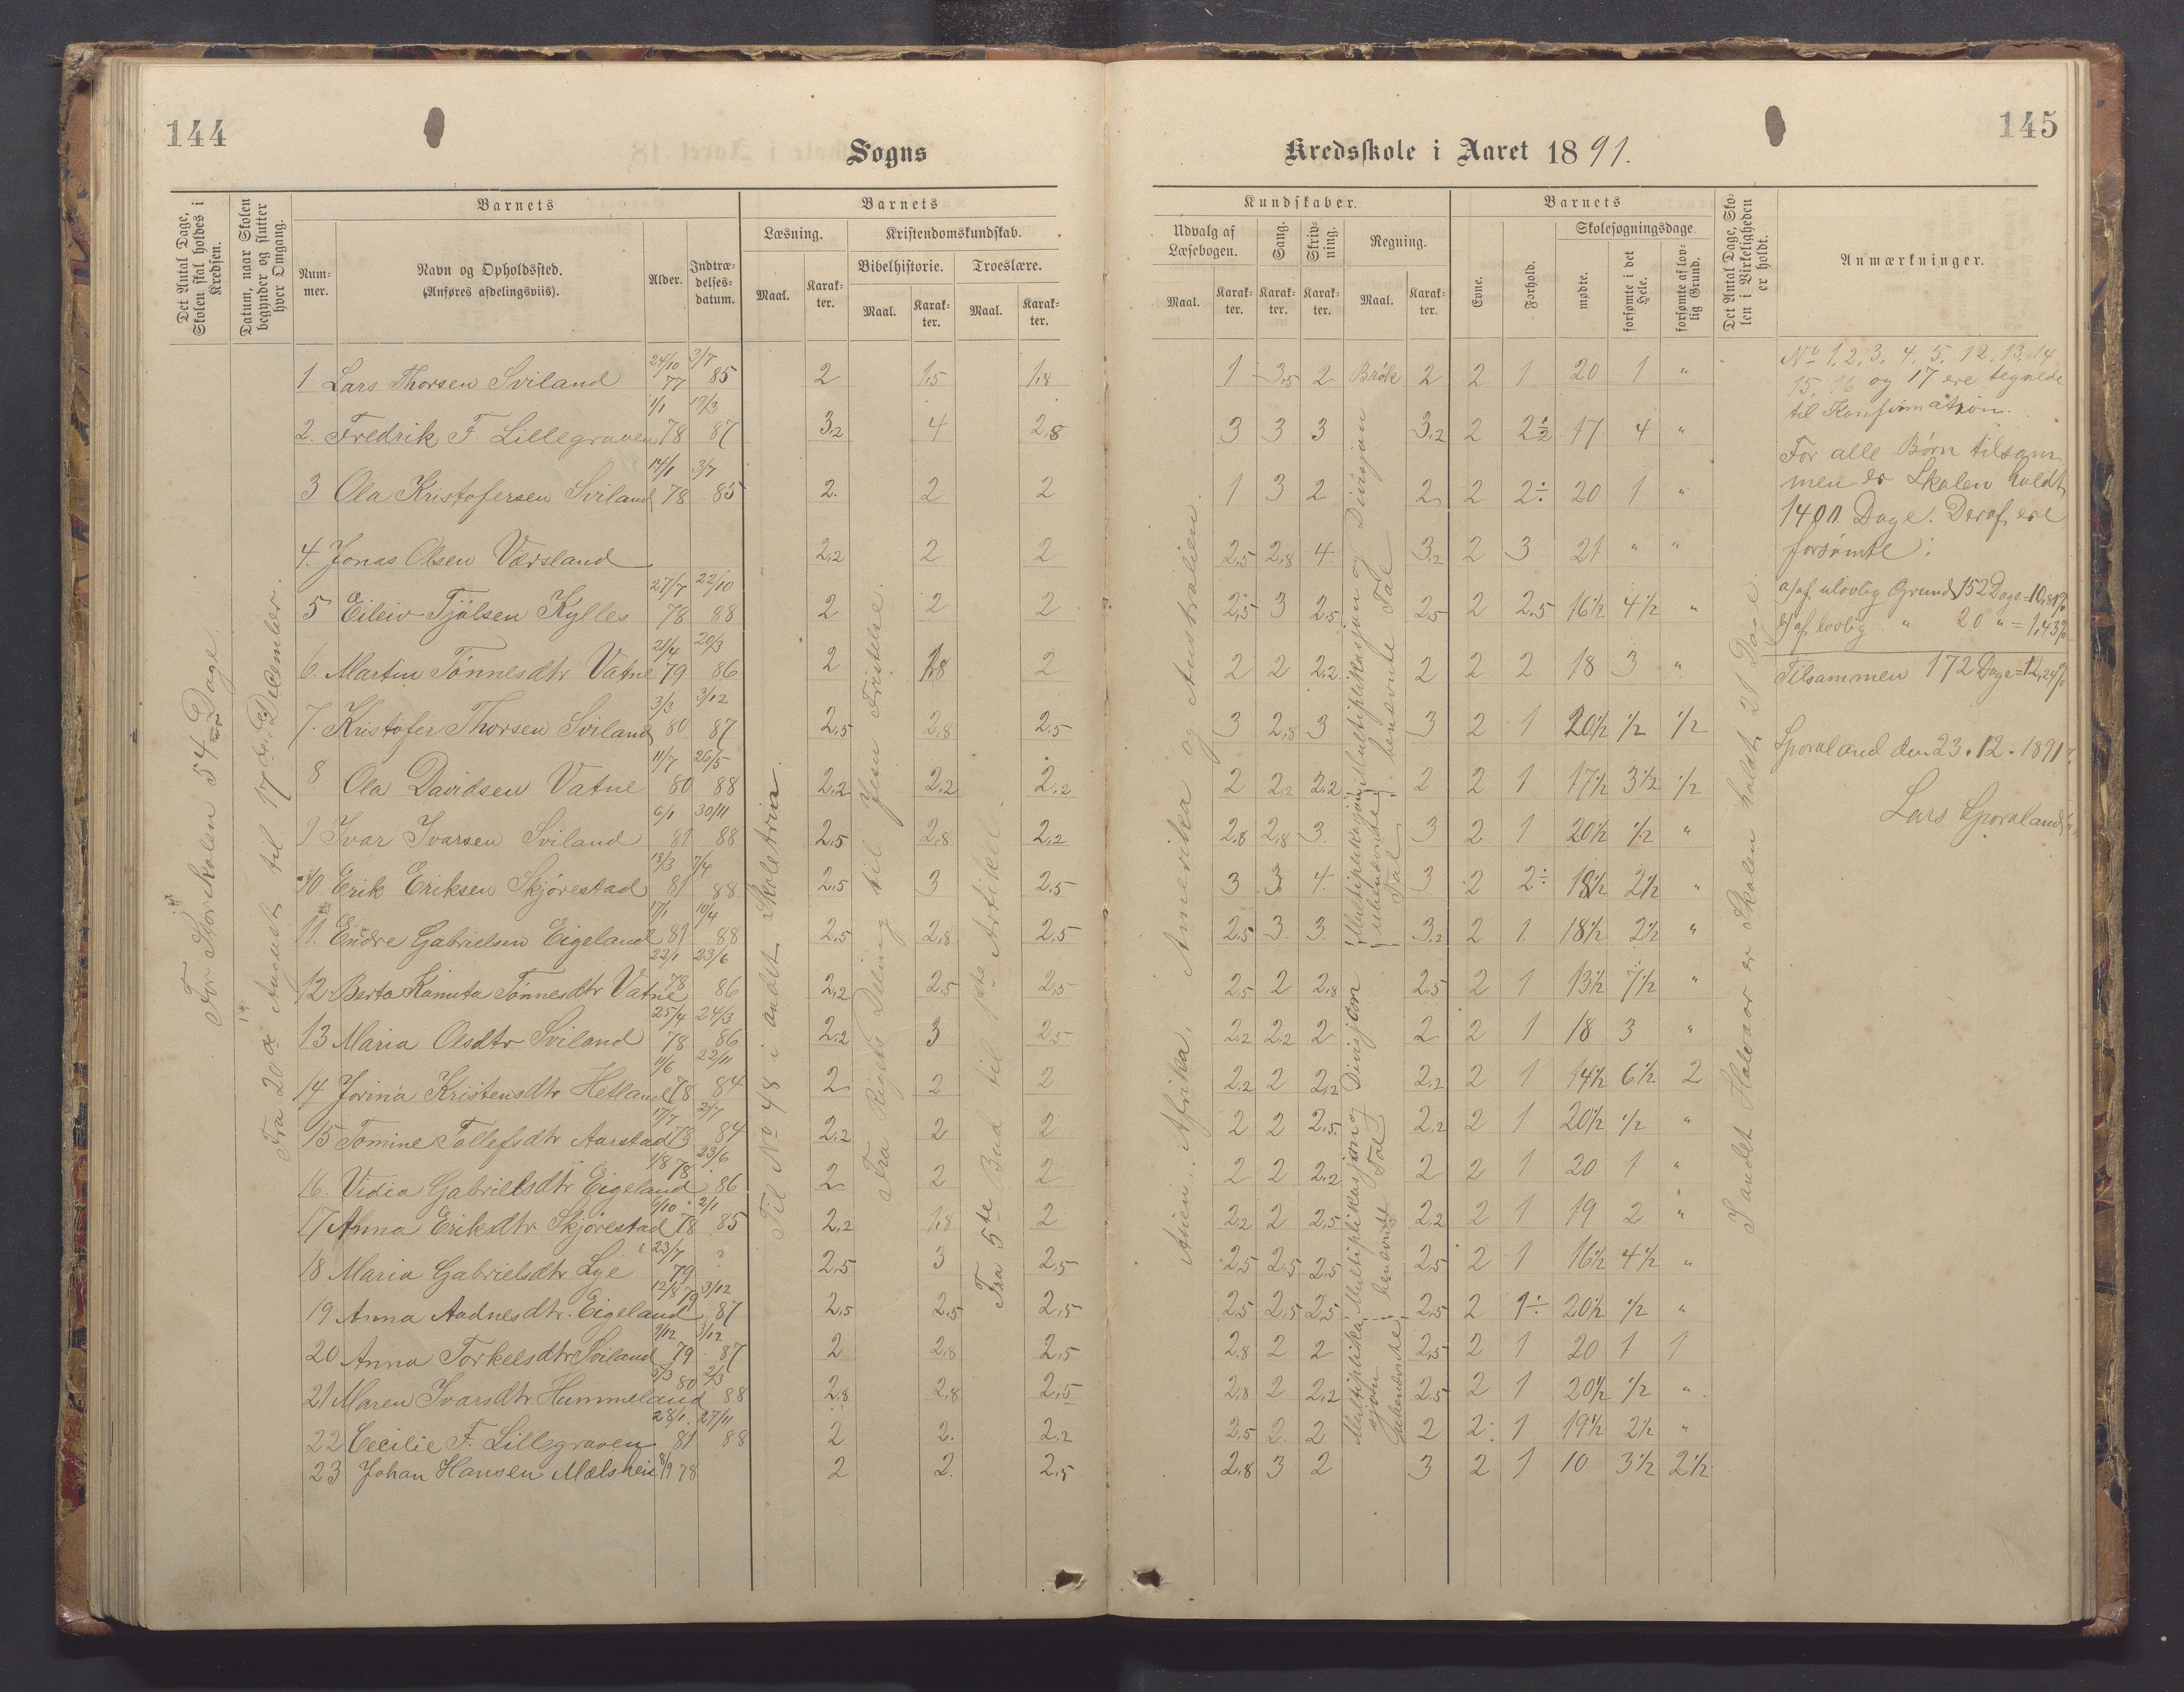 144
Sogns
Det Antal Dage, Skolen skal holdes i Kredsen.
Datum, naar Skolen begynder og slutter hver Omgang.
Barnets
Nummer.
Navn og Opholdssted. (Anføres afdelingsviis).
Alder.
Indtrædelsesdatum.
Barnets
Læsning.
Kristendomskundskab.
Bibelhistorie.
Troeslære.
Maal.
Karakter.
Maal.
Karakter.
Maal.
Karakter.
For Storskolen 54 Dage.
Fra 20de August til 17de December.
Til No 48 i andet Skoletrin.
Fra Rigets Deling til Jesu Fristelse.
Fra 5te Bud til Artikel.
1 Lars Thorsen Sviland 24/10 77 3/7 85 2 1,5 1,8
2. Fredrik F. Lillegraven 1/1 78 19/3 87 3,2 4 2,8
3 Ola Kristofersen Sviland 14/1 78 3/7 85 2. 2 2
4. Jonas Olsen Værsland 2,2 2 2
5 Eileiv Tjølsen Kylles 27/7 78 22/10 88 2 2 2
6. Martin Tønnesdtr Vatne 21/4 79 20/3 86 2 1,8 2
7. Kristofer Thorsen Sviland 3/3 80 3/12 87 2,5 2,8 2,5
8 Ola Davidsen Vatne 11/7 80 26/5 88 2,2 2,2 2,2
9 Ivar Ivarsen Sviland 6/1 81 30/11 88 2,5 2,8 2,2
10 Erik Eriksen Skjørestad 18/3 81 7/4 88 2,5 3 2,5
11. Endre Gabrielsen Eigeland 17/1 81 10/4 88 2,5 2,8 2,5
12 Berta Kanuta Tønnesdtr Vatne 22/1 78 23/6 86 2,2 2,5 2,5
13 Maria Olsdtr Sviland 25/4 78 24/3 86 2,2 3 2,5
14 Jorina Kristensdtr Hetland 11/6 78 22/11 84 2 2 2
15 Tomine Tollefsdtr Aarstad 17/7 78 2/7 84 2,2 2 2
16. Vidia Gabrielsdtr Eigeland 1/8 78 23/6 86 2 2 2
17 Anna Eriksdtr Skjørestad 6/10 78 2/1 85 2,2 1,8 2
18 Maria Gabrielsdtr Lye 23/7 79 ? 2,5 3 2,5
19 Anna Aadnesdtr. Eigeland 12/8 79 3/12 87 2,5 2,5 2,5
20 Anna Torkelsdtr Sviland 9/12 79 3/12 87 2 2,8 2,5
21 Maren Ivarsdtr Hummeland 3/3 80 2/3 88 2,8 2,8 2,5
22 Cecilie F. Lillegraven 28/1 81 27/11 88 2 2. 2,2
23 Johan Hansen Mælsheia 8/9 78 2 2. 2,5
145
Kredsskole i Aaret 1891.
Kundskaber.
Udvalg af Læsebogen.
Sang.
Skrivning.
Regning.
Maal.
Karakter.
Karakter.
Karakter.
Maal.
Karakter.
Barnets
Evne.
Forhold.
Skolesøgningsdage.
mødte.
forsømte i det Hele.
forsømte af lovlig Grund.
Det Antal Dage, Skolen i Virkeligheden er holdt.
Anmærkninger.
Asien, Afrika, Amerika og Australien.
Multiplikasjon og Divisjon benævnte Tal
Multiplikasjon ubenævnte Tal
Multiplikasjon og Divisjon benævnte Tal
Multiplikasjon
I andet Halvaar er Skolen holdt 21 Dage.
1 3,5 2 Brøk 2 2 1 20 1 "
3 3 3 3,2 2 2 1/2 17 4 "
1 3 2 2 2 2÷ 20 1 "
2,5 2,8 4 3,2 2 3 21 " "
2,5 3 2,5 2,5 2 2,5 16 1/2 4 1/2 "
2 2 2,2 2 2 2 18 3 "
3 2,8 3 3 2 1 20 1/2 1/2 1/2
2 2,2 2,2 2 2 1 17 1/2 3 1/2 1/2
2,8 2,8 3 3 2 1 20 1/2 1/2 "
3 3 4 3 2 2÷ 18 1/2 2 1/2 "
2,5 3 3 3,2 2 1 18 1/2 2 1/2 "
2,5 2 2,8 2,5 2 1 13 1/2 7 1/2 "
2,2 2,2 2 2 2 1 18 3 "
2,2 2 2,2 2,2 2 1 14 1/2 6 1/2 2
2 2 2,5 2,2 2 1 20 1/2 1/2 "
2 2 2,2 2 2 1 20 1 "
2,2 2 2,5 2,2 2 1 19 2 "
2,5 2,5 2,5 2,5 2 1 16 1/2 4 1/2 "
2,5 2,5 2,5 2,5 2 1÷ 20 1/2 1/2 "
2,8 2 2 2,5 2 1 20 1 1
2,8 2 2,2 2,5 2 1 20 1/2 1/2 "
2,5 2 2 2 2 1 19 1/2 2 1/2 "
2,8 3 2 3 2 1 10 3 1/2 2 1/2
No 1, 2, 3, 4, 5, 12, 13, 14
15, 16 og 17 ere tegnede
til Konfirmation.
For alle Børn tilsam
men er Skolen holdt
1401 Dage. Deraf ere
forsømte:
a) af ulovlig Grund 152 Dage = 10,81%
b) af lovlig " 20 " = 1,43%
Tilsammen 172 Dage = 12,24%
Sporaland den 23.12.1891
Lars Sporaland